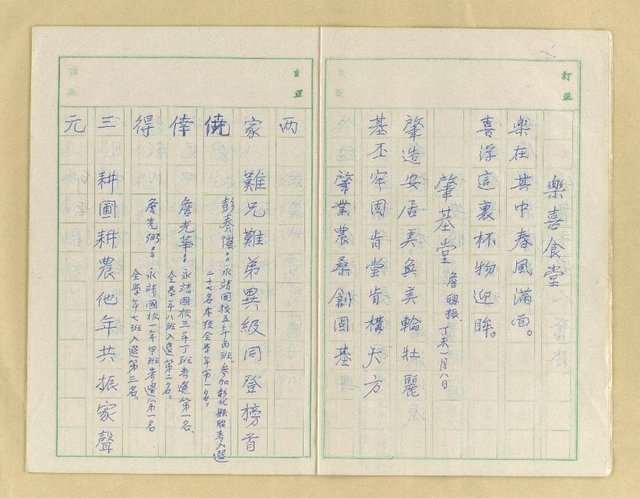 樂喜食堂
樂在其中春風滿面。
喜浮這裏杯物迎眸。
肇基堂 詹 丁未一月八日
肇造安居美奐美輪壯麗
基丕牢固肯堂肯構大方
肇業農桑創固基
両家難兄難弟異級同登榜首
僥倖得三元
彭奏傑:永靖國校五年丙班,參加彰化縣聯考入選
二十七名本校全學年第一名。
詹光華:永靖國校三年丁班考選第一名、
全學年八班入選第二名。
詹光衡:永靖國校一年甲班考選第一名
全學年七班入選第三名。
耕圃耕農他年共振家聲
訂